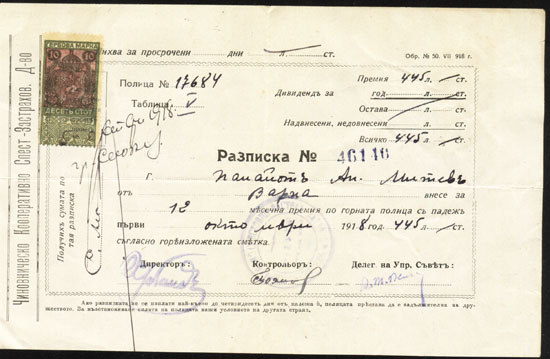 Чиновническо Кооперативно Спест.-Застрахов. Д-во
ГЕРБОВА МАРКА
10 10
ДЕСЕТЬ СТОТ
Лихва за просрочени дни л. ст.
Обр. № 50. VII 918 г.
Полица № 17684
Таблица V
Премия 445 л. ст.
Дивидендъ за год л. ст.
Остава л. ст.
Надвнесени, недовнесени л. ст.
Всичко 445 л. ст.
Разписка № 46146
Г. Панайотъ Ан. Митевъ
отъ Варна внесе за
12 месечна премия по горната полица съ падежъ
първи октомври 1918 година 445 л. ст.
съгласно горѣизложената смѣтка.
Директоръ: Контрольоръ: Делег. на Упр. Съвѣтъ:
Получихъ сумата по
тая разписка
Ако разписката не се изплати най-късно до четиридесеть дни отъ падежа ѝ, полицата прѣстава да е задължителна за дру-
жеството. За възстановяване силата на полицата важи условието на другата страна.